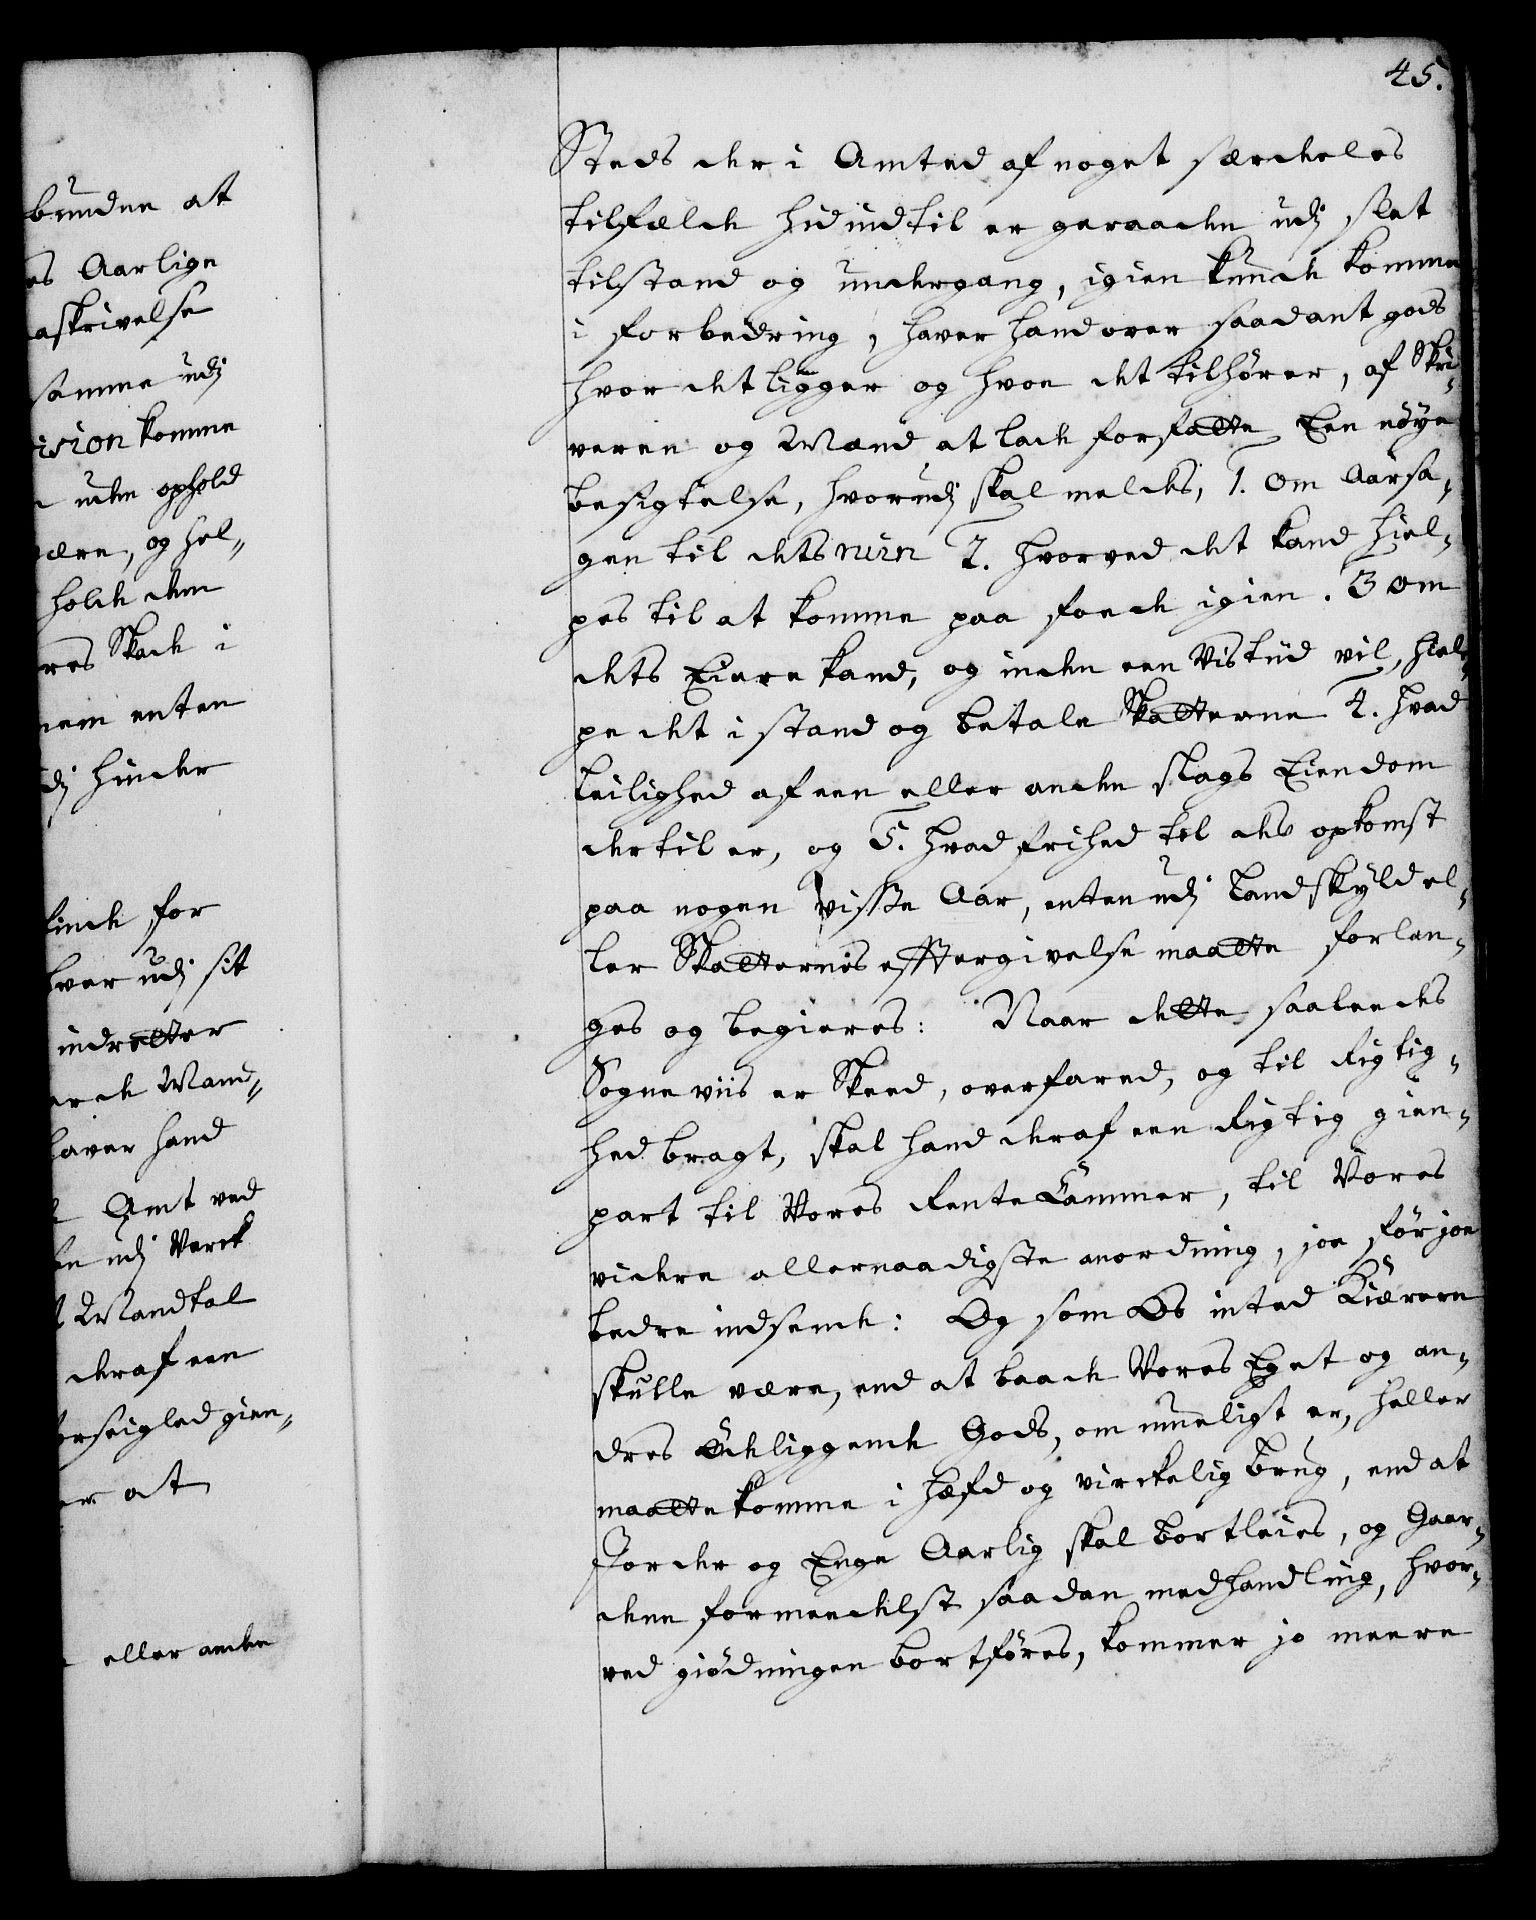 bunden at
es Aarlige
askrivelse
samme udj
ision komme
uden ophold
være, og hol„
holde dem
res Skade i
nem enten
dj hinder
finde for
hver udj sit
indretter
erede Mand„
haver hand
Amt ved
en udj Verck
Mandtal
deraf een
erseigled gien„
er at
eller anden
45.
Steds der i Amted af noget særdeles
tilfælde hidindtil er geraaden udj slet
tilstand og undergang, igien kunde komme
i forbedring, haver hand over saadant gods
hvor det ligger og hvem det tilhører, af Skri„
veren og Mænd at lade forfatte Een nøye
besigtelse, hvorudj skal meldes, 1. om Aarsa„
gen til dets ruin 2. hvorved det kand hiel„
pes til at komme paa foede igien. 3 om
dets Eiere kand, og inden een Vis tiid vil, hiel„
pe det i stand og betale Skatterne 4. hvad
Leilighed af een eller anden slags Eiendom
dertil er, og 5. hvad frihed til des opkomst
paa nogen visse Aar, enten udj Landskyld el„
ler Skatternis efftergivelse maatte forlan„
ges og begieres: Naar dette saaledes
Sogneviis er Skeed, overfared, og til Rigtig„
hed bragt, skal hand deraf een Rigtig gien„
part til Vores RenteCammer, til Vores
videre allernaadigste anordning, joe før joe
bedre indsende: Og som Os inted Kiærere
skulle være, end at baade Vores Eget og an„
dres Ödeliggende Gods, om mueligt er, heller
maatte komme i hæfd og virckelig brug, end at
Jorder og Enge Aarlig skal bortleies, og Gaar„
dene formedelst saadan medhandling, hvor„
ved giødningen bortføres, kommer jo meere